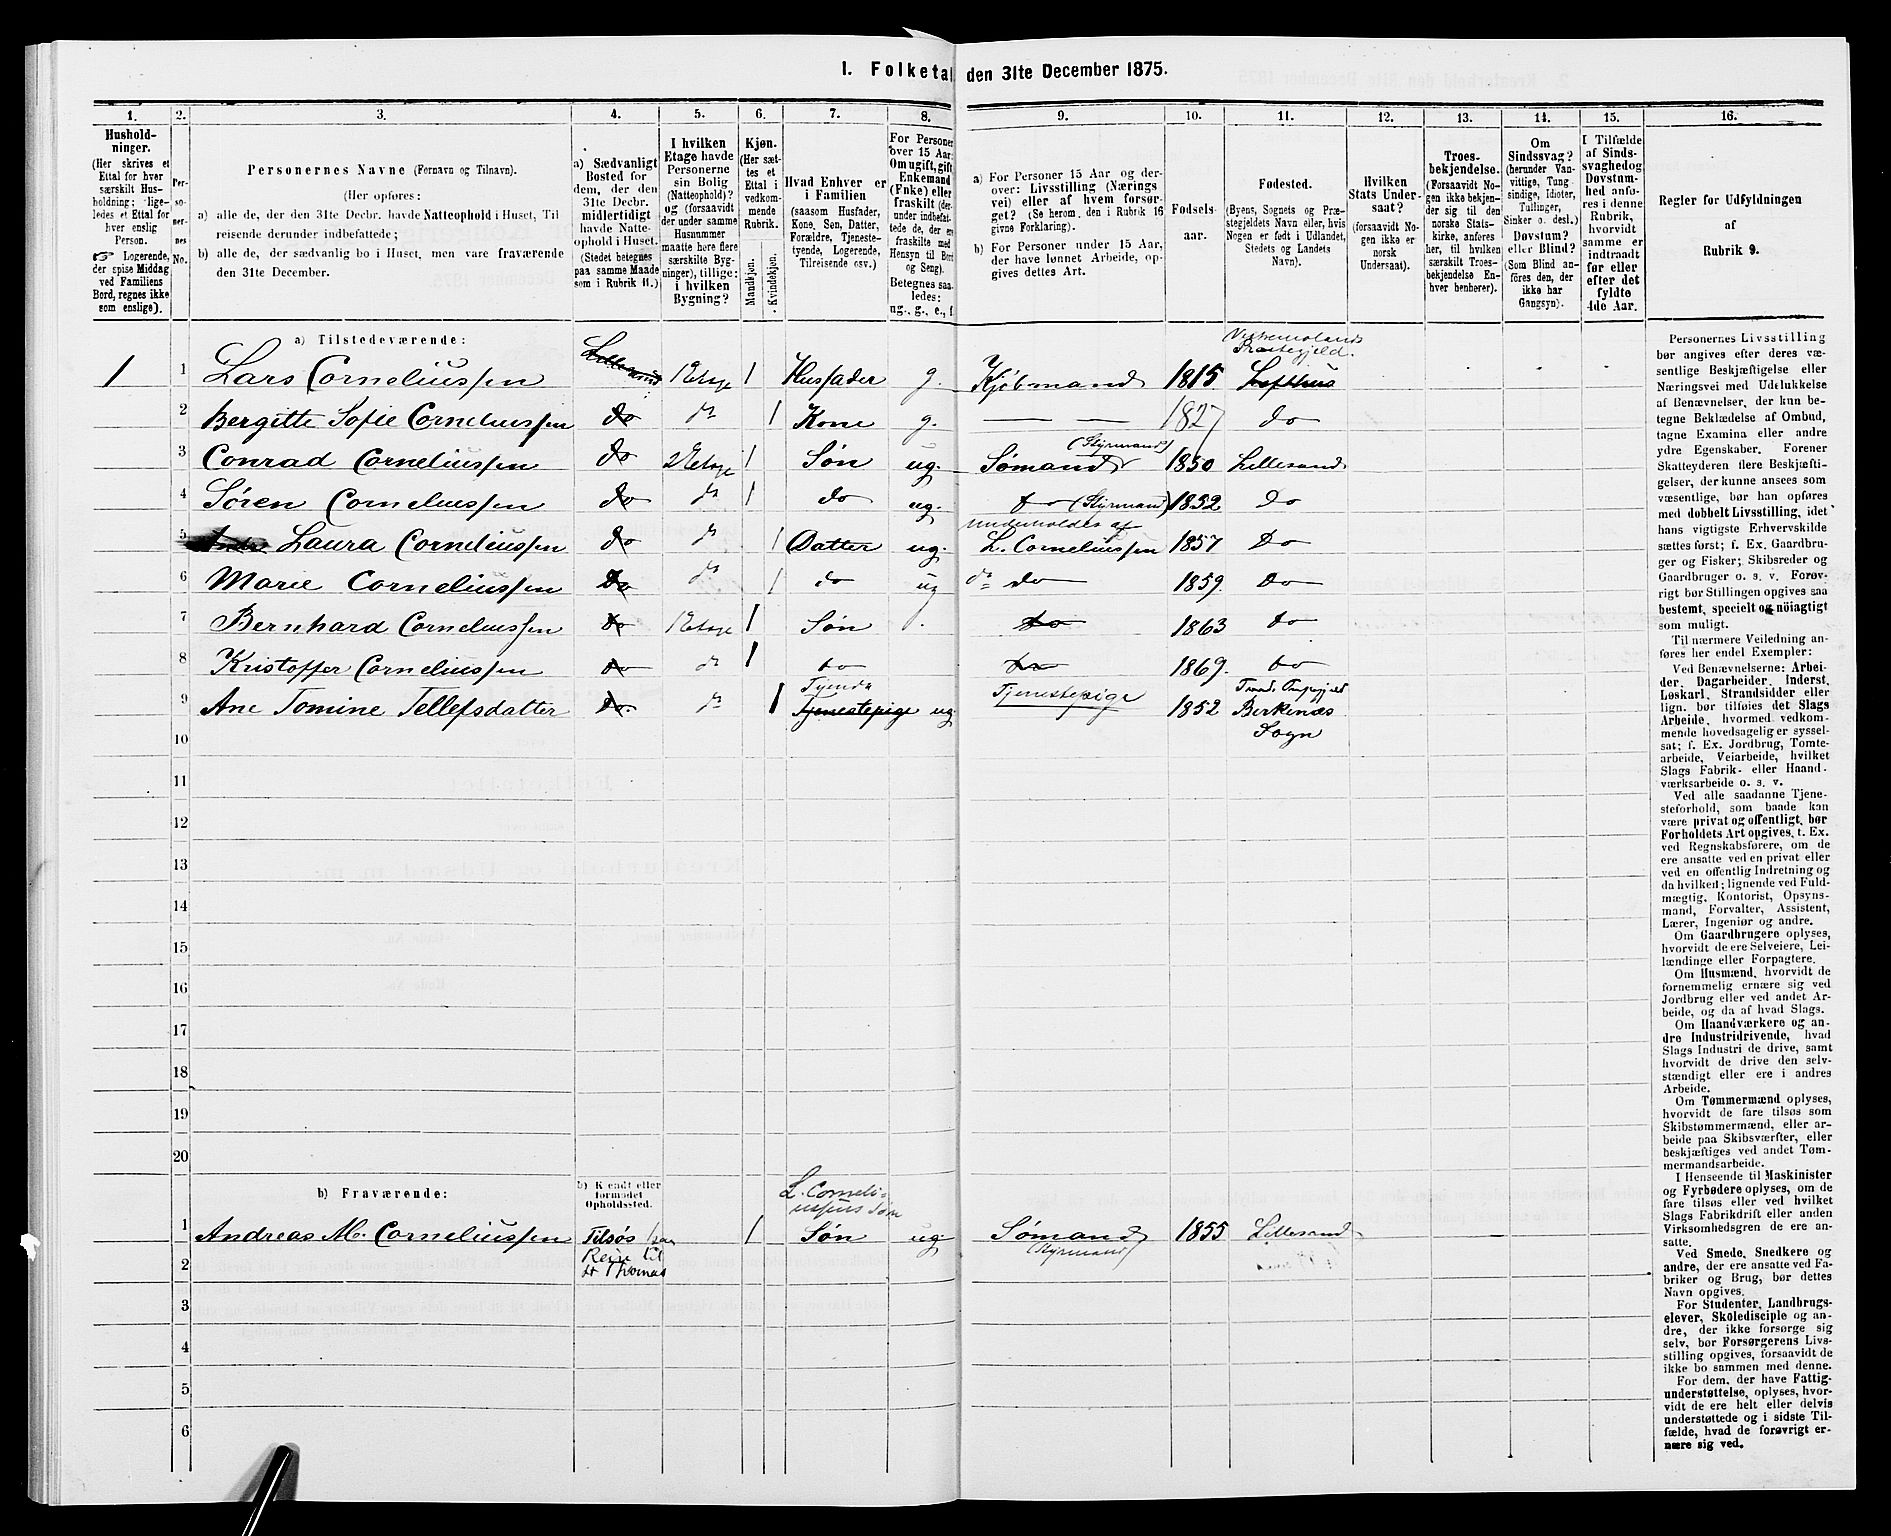 I. Folketal den 31te December 1875.
1. 2. 3. 4. 5. 6. 7. 8. 9. 10. 11. 12. 13. 14. 15. 16.
Hushold-
ninger.
(Her skrives et
Ettal for hver
særskilt Hus-
holdning; lige-
ledes et Ettal for
hver enslig
Person.
☞ Logerende,
der spise Middag
ved Familiens
Bord, regnes ikke
som enslige).
Per-
so-
ner-
nes
No.
Personernes Navne (Fornavn og Tilnavn).
(Her opføres:
a) alle de, der den 31te Decbr. havde Natteophold i Huset, Til
reisende derunder indbefattede;
b) alle de, der sædvanlig bo i Huset, men vare fraværende
den 31te December.
a) Sædvanligt
Bosted for
dem, der den
31te Decbr.
midlertidigt
havde Natte-
ophold i Huset.
(Stedet betegnes
paa samme Maade
som i Rubrik 11.)
I hvilken
Etage havde
Personerne
sin Bolig
(Natteophold)?
og (forsaavidt
der under samme
Husnummer
maatte høre flere
særskilte Byg-
ninger), tillige:
i hvilken
Bygning?
Kjøn.
(Her sæt-
tes et
Ettal i
vedkom-
mende
Rubrik.
Mandkjøn.
Kvindekjøn.
Hvad Enhver er
i Familien
(saasom Husfader,
Kone, Søn, Datter,
Forældre, Tjeneste-
tyende, Logerende,
Tilreisende osv.)
For Personer
over 15 Aar:
Om ugift, gift,
Enkemand
(Enke) eller
fraskilt (der-
under indbefat-
tede de, der ere
fraskilte med
Hensyn til Bord
og Seng).
Betegnes saa-
ledes:
ug., g., e., f.
a) For Personer 15 Aar og der-
over: Livsstilling (Nærings
vei) eller af hvem forsør-
get? (Se herom, den i Rubrik 16
givne Forklaring).
b) For Personer under 15 Aar,
der have lønnet Arbeide, op-
gives dettes Art.
Fødsels-
aar.
Fødested.
(Byens, Sognets og Præ-
stegjeldets Navn eller, hvis
Nogen er født i Udlandet,
Stedets og Landets
Navn).
Hvilken
Stats Under-
saat?
(forsaavidt No-
gen ikke er
norsk
Undersaat).
Troes-
bekjendelse.
(Forsaavidt No-
gen ikke bekjen-
der sig til den
norske Stats-
kirke, anføres
her, til hvilken
særskilt Troes-
bekjendelse En-
hver henhører).
Om
Sindssvag?
(herunder Van-
vittige, Tung
sindige, Idioter,
Tullinger,
Sinker o. desl.)
Døvstum?
eller Blind?
(Som Blind an-
føres den, der
ikke har
Gangsyn).
I Tilfælde
af Sinds-
svaghed og
Døvstum-
hed anfø-
res i denne
Rubrik,
hvorvidt
samme er
indtraadt
før eller
efter det
fyldte
4de Aar.
Regler for Udfyldningen
af
Rubrik 9.
a) Tilstedeværende:
Præstegjeld.
1 1 Lars Corneliussen Lillesand 1 Etage 1 Husfader g. Kjøbmand 1815 Lofthus
2 Bergitte Sofie Corneliussen do do 1 Kone g. — — 1827 do
(Styrmand)
3 Conrad Corneliussen do 2 Etage 1 Søn ug. Sømand 1850 Lillesand
4 Søren Corneliussen do do 1 do ug. do (Styrmand) 1852 do
underholdes af
5 Laura Corneliussen do do 1 Datter ug. L. Corneliussen 1857 do
6 Marie Corneliussen do do 1 do ug do do 1859. do
7 Bernhard Corneliussen do 1 Etage 1 Søn do 1863 do
8 Kristoffer Corneliussen do do 1 do do 1869. do
Tyende
9 Ane Tomine Tellefsdatter do. do 1 Tjenestepige ug Tjenestepige 1852 Berkenæs
Sogn
10
11
12
13
14
15
16
17
18
19
20
b) Fraværende:
b) Kjendt eller
formodet
Opholdssted.
L. Corneli-
ussens Søn
1 Andreas M. Corneliussen Tilsøs paa 1 Søn ug. Sømand 1855 Lillesand
Reise til (Styrmand)
2 St Thomas
3
4
5
6
Personernes Livsstilling
bør angives efter deres væ-
sentlige Beskjæftigelse eller
Næringsvei med Udelukkelse
af Benævnelser, der kun be-
tegne Beklædelse af Ombud,
tagne Examina eller andre
ydre Egenskaber. Forener
Skatteyderen flere Beskjæfti-
gelser, der kunne ansees som
væsentlige, bør han opføres
med dobbelt Livsstilling, idet
hans vigtigste Erhvervskilde
sættes først; f. Ex. Gaardbru-
ger og Fisker; Skibsreder og
Gaardbruger o. s. v. Forøv-
rigt bør Stillingen opgives saa
bestemt, specielt og nöiagtigt
som muligt.
Til nærmere Veiledning an-
føres her endel Exempler:
Ved Benævnelserne: Arbei-
der, Dagarbeider, Inderst,
Løskarl, Strandsidder eller
lign. bør tilføies det Slags
Arbeide, hvormed vedkom-
mende hovedsagelig er syssel-
sat; f. Ex. Jordbrug, Tomte-
arbeide, Veiarbeide, hvilket
Slags Fabrik- eller Haand-
værksarbeide o. s. v.
Ved alle saadanne Tjene-
steforhold, som baade kan
være privat og offentligt, bør
Forholdets Art opgives, t. Ex.
ved Regnskabsførere, om de
ere ansatte ved en privat eller
ved en offentlig Indretning og
da hvilken; lignende ved Fuld-
mægtig, Kontorist, Opsyns-
mand, Forvalter, Assistent,
Lærer, Ingeniør og andre.
Om Gaardbrugere oplyses,
hvorvidt de ere Selveiere, Lei-
lændinge eller Forpagtere.
Om Husmænd, hvorvidt de
fornemmelig ernære sig ved
Jordbrug eller ved andet Ar-
beide, og da af hvad Slags.
Om Haandværkere og an-
dre Industridrivende, hvad
Slags Industri de drive, samt
hvorvidt de drive den selv-
stændigt eller ere i andres
Arbeide.
Om Tømmermænd oplyses,
hvorvidt de fare tilsøs som
Skibstømmermænd, eller ar-
beide paa Skibsværfter, eller
beskjæftiges ved andet Tøm-
mermandsarbeide.
I Henseende til Maskinister
og Fyrbødere oplyses, om de
fare tilsøs eller ved hvilket
Slags Fabrikdrift eller anden
Virksomhedsgren de ere an-
satte.
Ved Smede, Snedkere og
andre, der ere ansatte ved Fa-
briker og Brug, bør dettes
Navn opgives.
For Studenter, Landbrugs-
elever, Skoledisciple og an-
dre, der ikke forsørge sig
selv, bør Forsørgerens Livs-
stilling opgives, forsaavidt de
ikke bo sammen med denne.
For dem, der have Fattig-
understøttelse, oplyses, hvor-
vidt de ere helt eller delvis
understøttede og i sidste Til-
fælde, hvad de forøvrigt er-
nære sig ved.